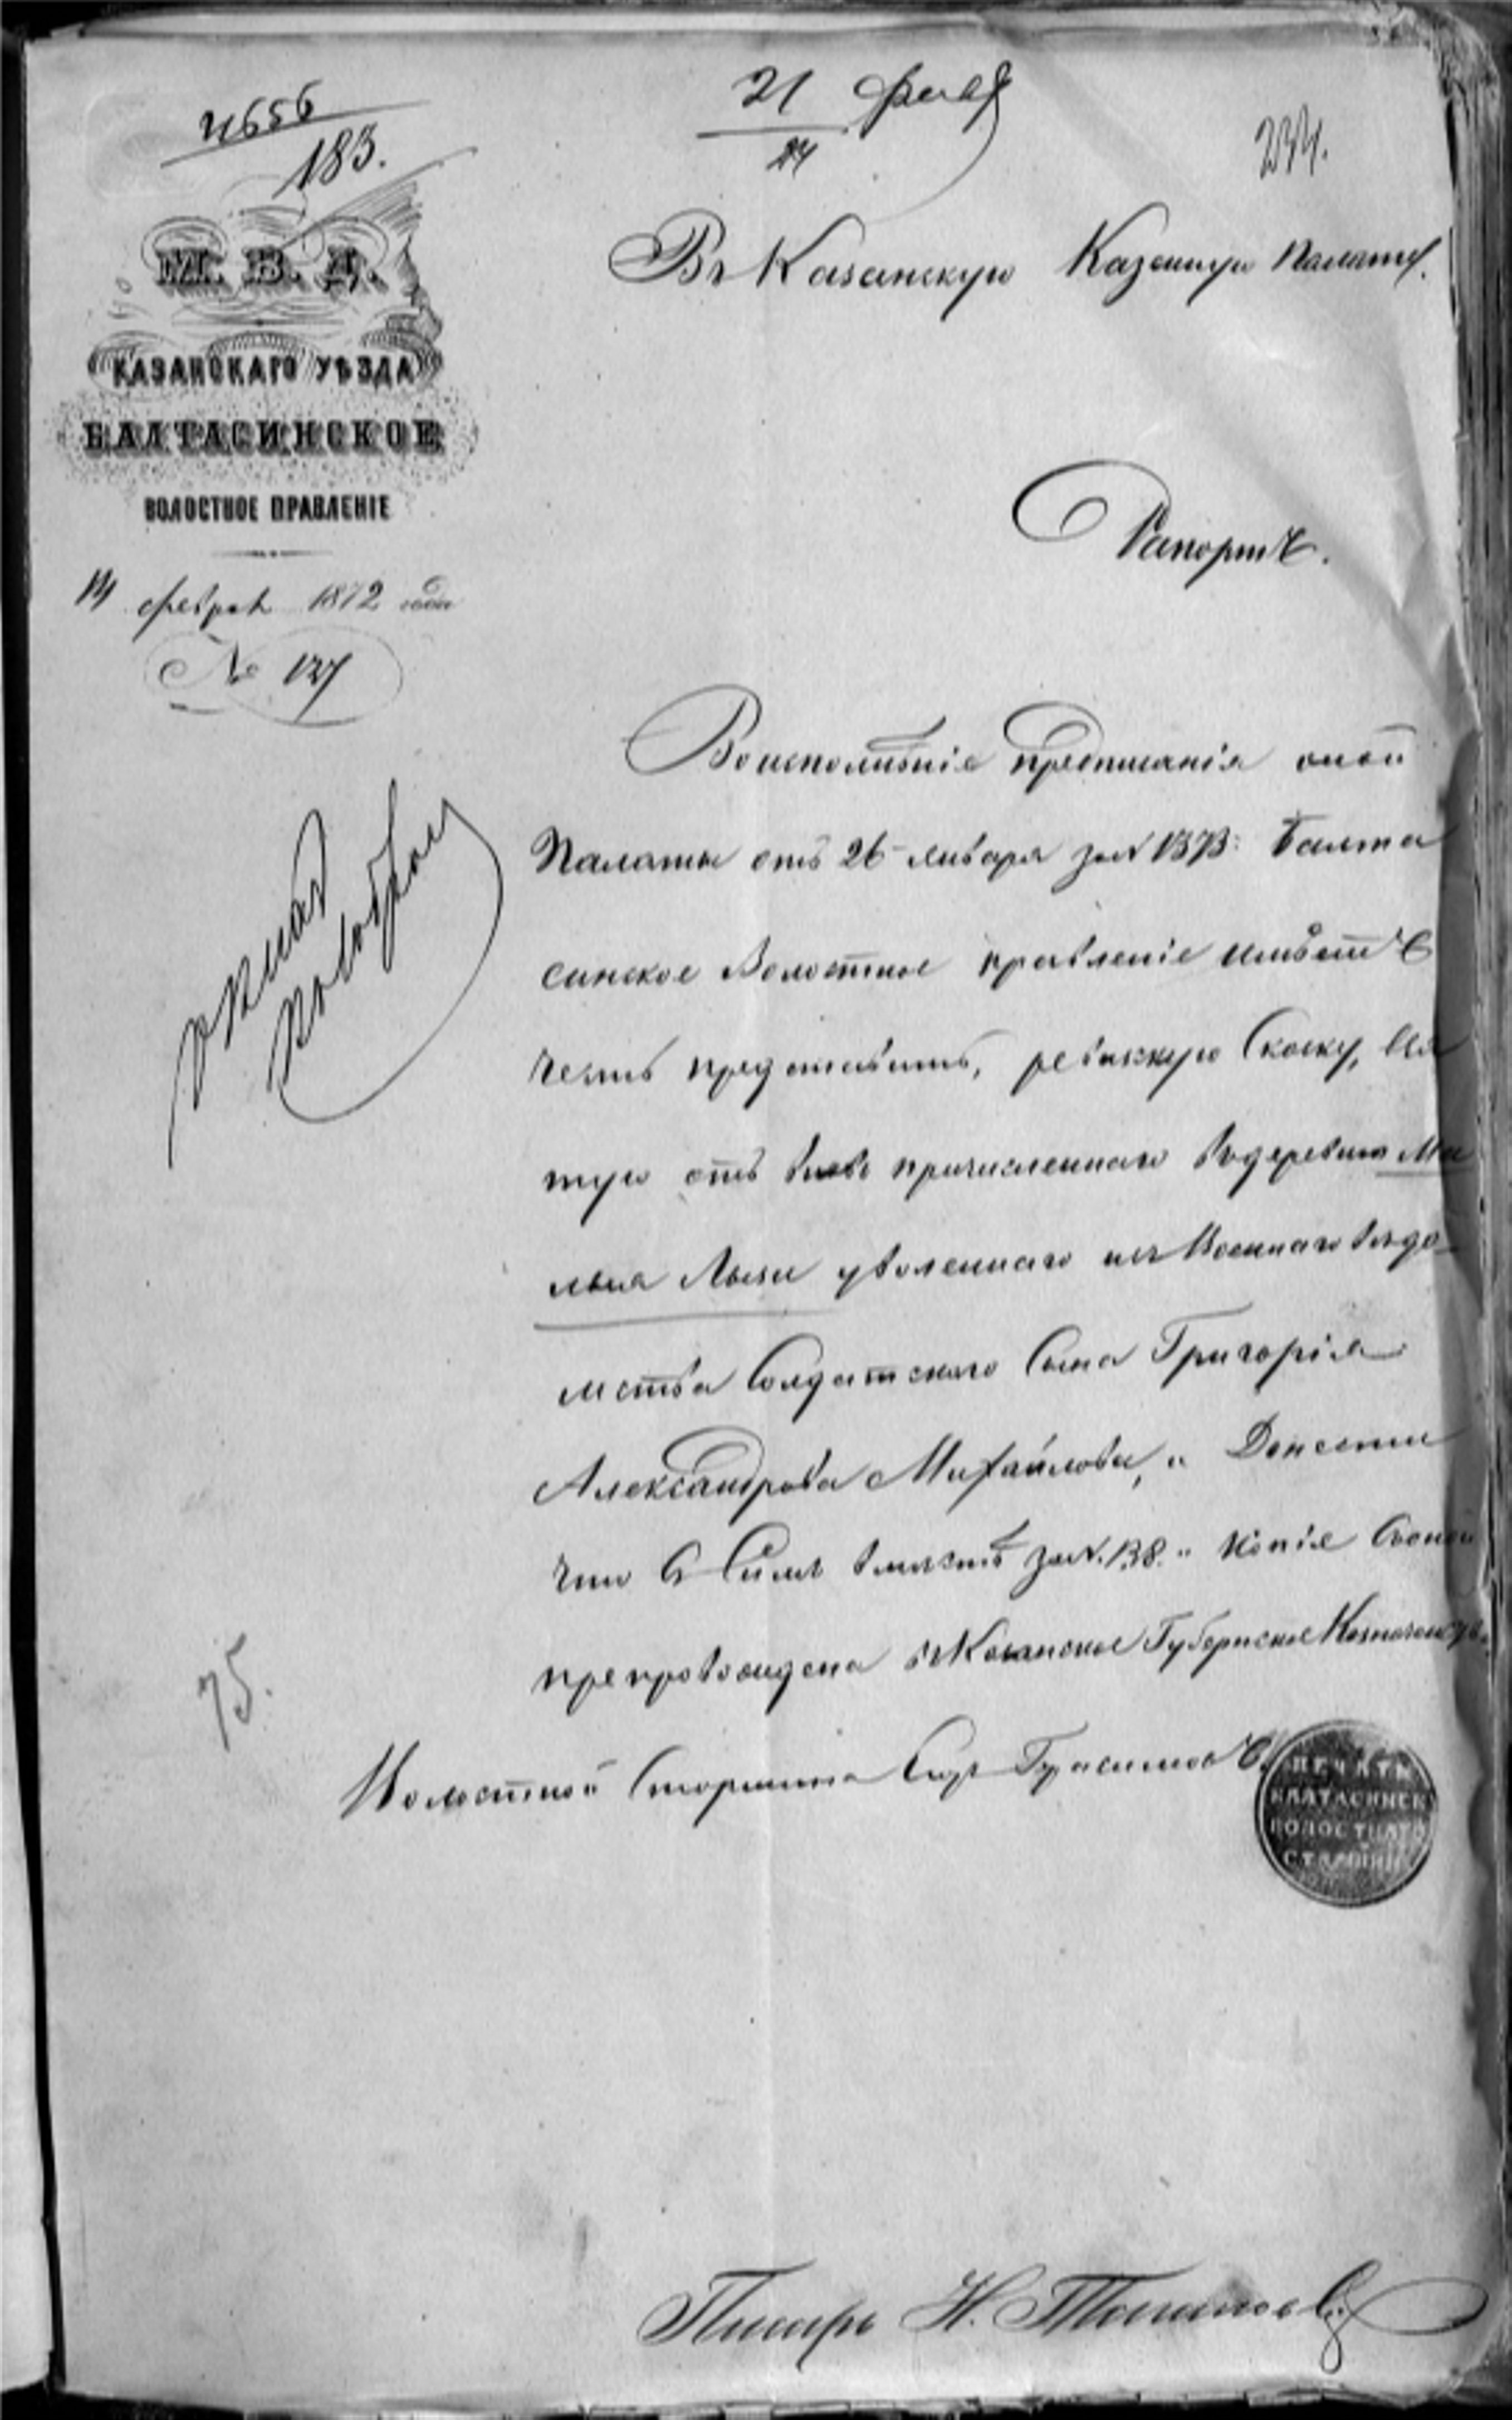 4656
183.
21 Февр
24
234.
М. В. Д.
КАЗАНСКАГО УѢЗДА
БАЛТАСИНСКОЕ
ВОЛОСТНОЕ ПРАВЛЕНІЕ
14 феврал 1872 года
№ 137
Въ Казанскую Казенную Палату.
Рапортъ.
Воисполненіе предписанія оной
Палаты отъ 26 января за № 1373: Балта
синское Волостное правленіе имѣетъ
честь представить, ревизскую Скаску, взя
тую отъ вновь причисленнаго въ деревню Ма
лыя Лызи уволеннаго изъ Военнаго вѣдо
мства Солдатскаго Сына Григорія
Александрова Михайлова, и Донести
что Съ Симъ вместѣ за №. 138. и копія Соной
препровождена въ Казанское Губернское Казначейство
75.
Волостной Старшина Герасимовъ
ПЕЧАТЬ
БАЛТАСИНСК
ВОЛОСТНАГО
СТАРШИН
Писарь Н.